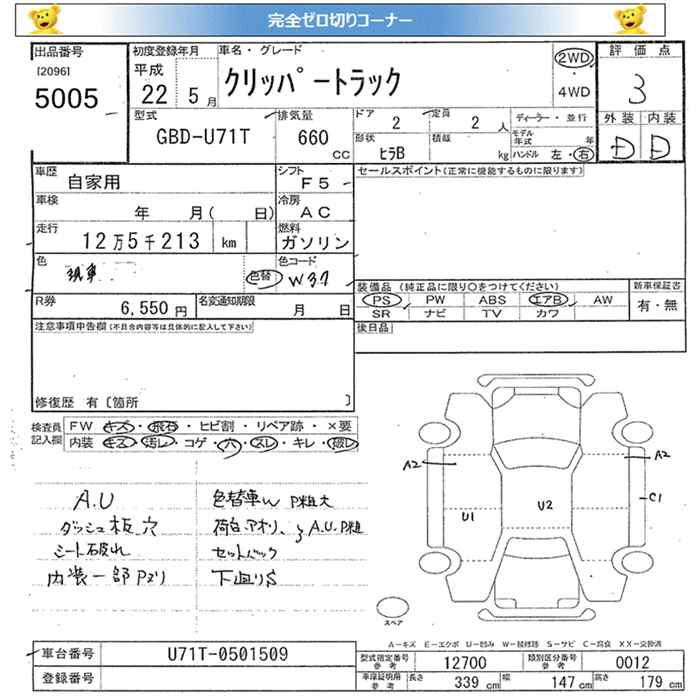 完全ゼロ切りコーナー
出品番号
[2096]
5005
初度登録年月
平成
22 5月
車名・グレード
クリッパートラック
2WD
・
4WD
評価点
3
外装 内装
D D
型式
GBD-U71T
排気量
660
CC
ドア
2
定員
2人
形状
ヒラB
積載
kg
ディーラー・並行
モデル年式
年
ハンドル 左・右
車歴
自家用
シフト
F5
車検
年 月( 日)
冷房
AC
走行
12万5千213 km
燃料
ガソリン
色
現車
色替
色コード
W37
R券
6,550円
名変通知期限
月 日
セールスポイント(正常に機能するものに限ります)
装備品 (純正品に限り○をつけてください)
PS PW ABS エアB AW
SR ナビ TV カワ
新車保証書
有・無
後日品
注意事項申告欄(不具合内容等は具体的に記入して下さい)
修復歴 有〔箇所 〕
検査員
記入欄
FW キズ・飛石・ヒビ割・リペア跡・×要
内装 キズ・汚レ・コゲ・穴・スレ・キレ・破レ
A.U
ダッシュ板穴
シート破れ
内装一部Pヌリ
色替車W P粗大
荷台、アオリ、 A.U.P粗
セットバック
下廻りS
A2
A2
U1
U2
C1
スペア
A-キズ E-エクボ U-凹み W-補修跡 S-サビ C-腐食 XX-交換済
車台番号
U71T-0501509
登録番号
型式指定番号
参考
12700
類別区分番号
参考
0012
車庫証明用
参考
長さ
339 cm
幅
147 cm
高さ
179 cm